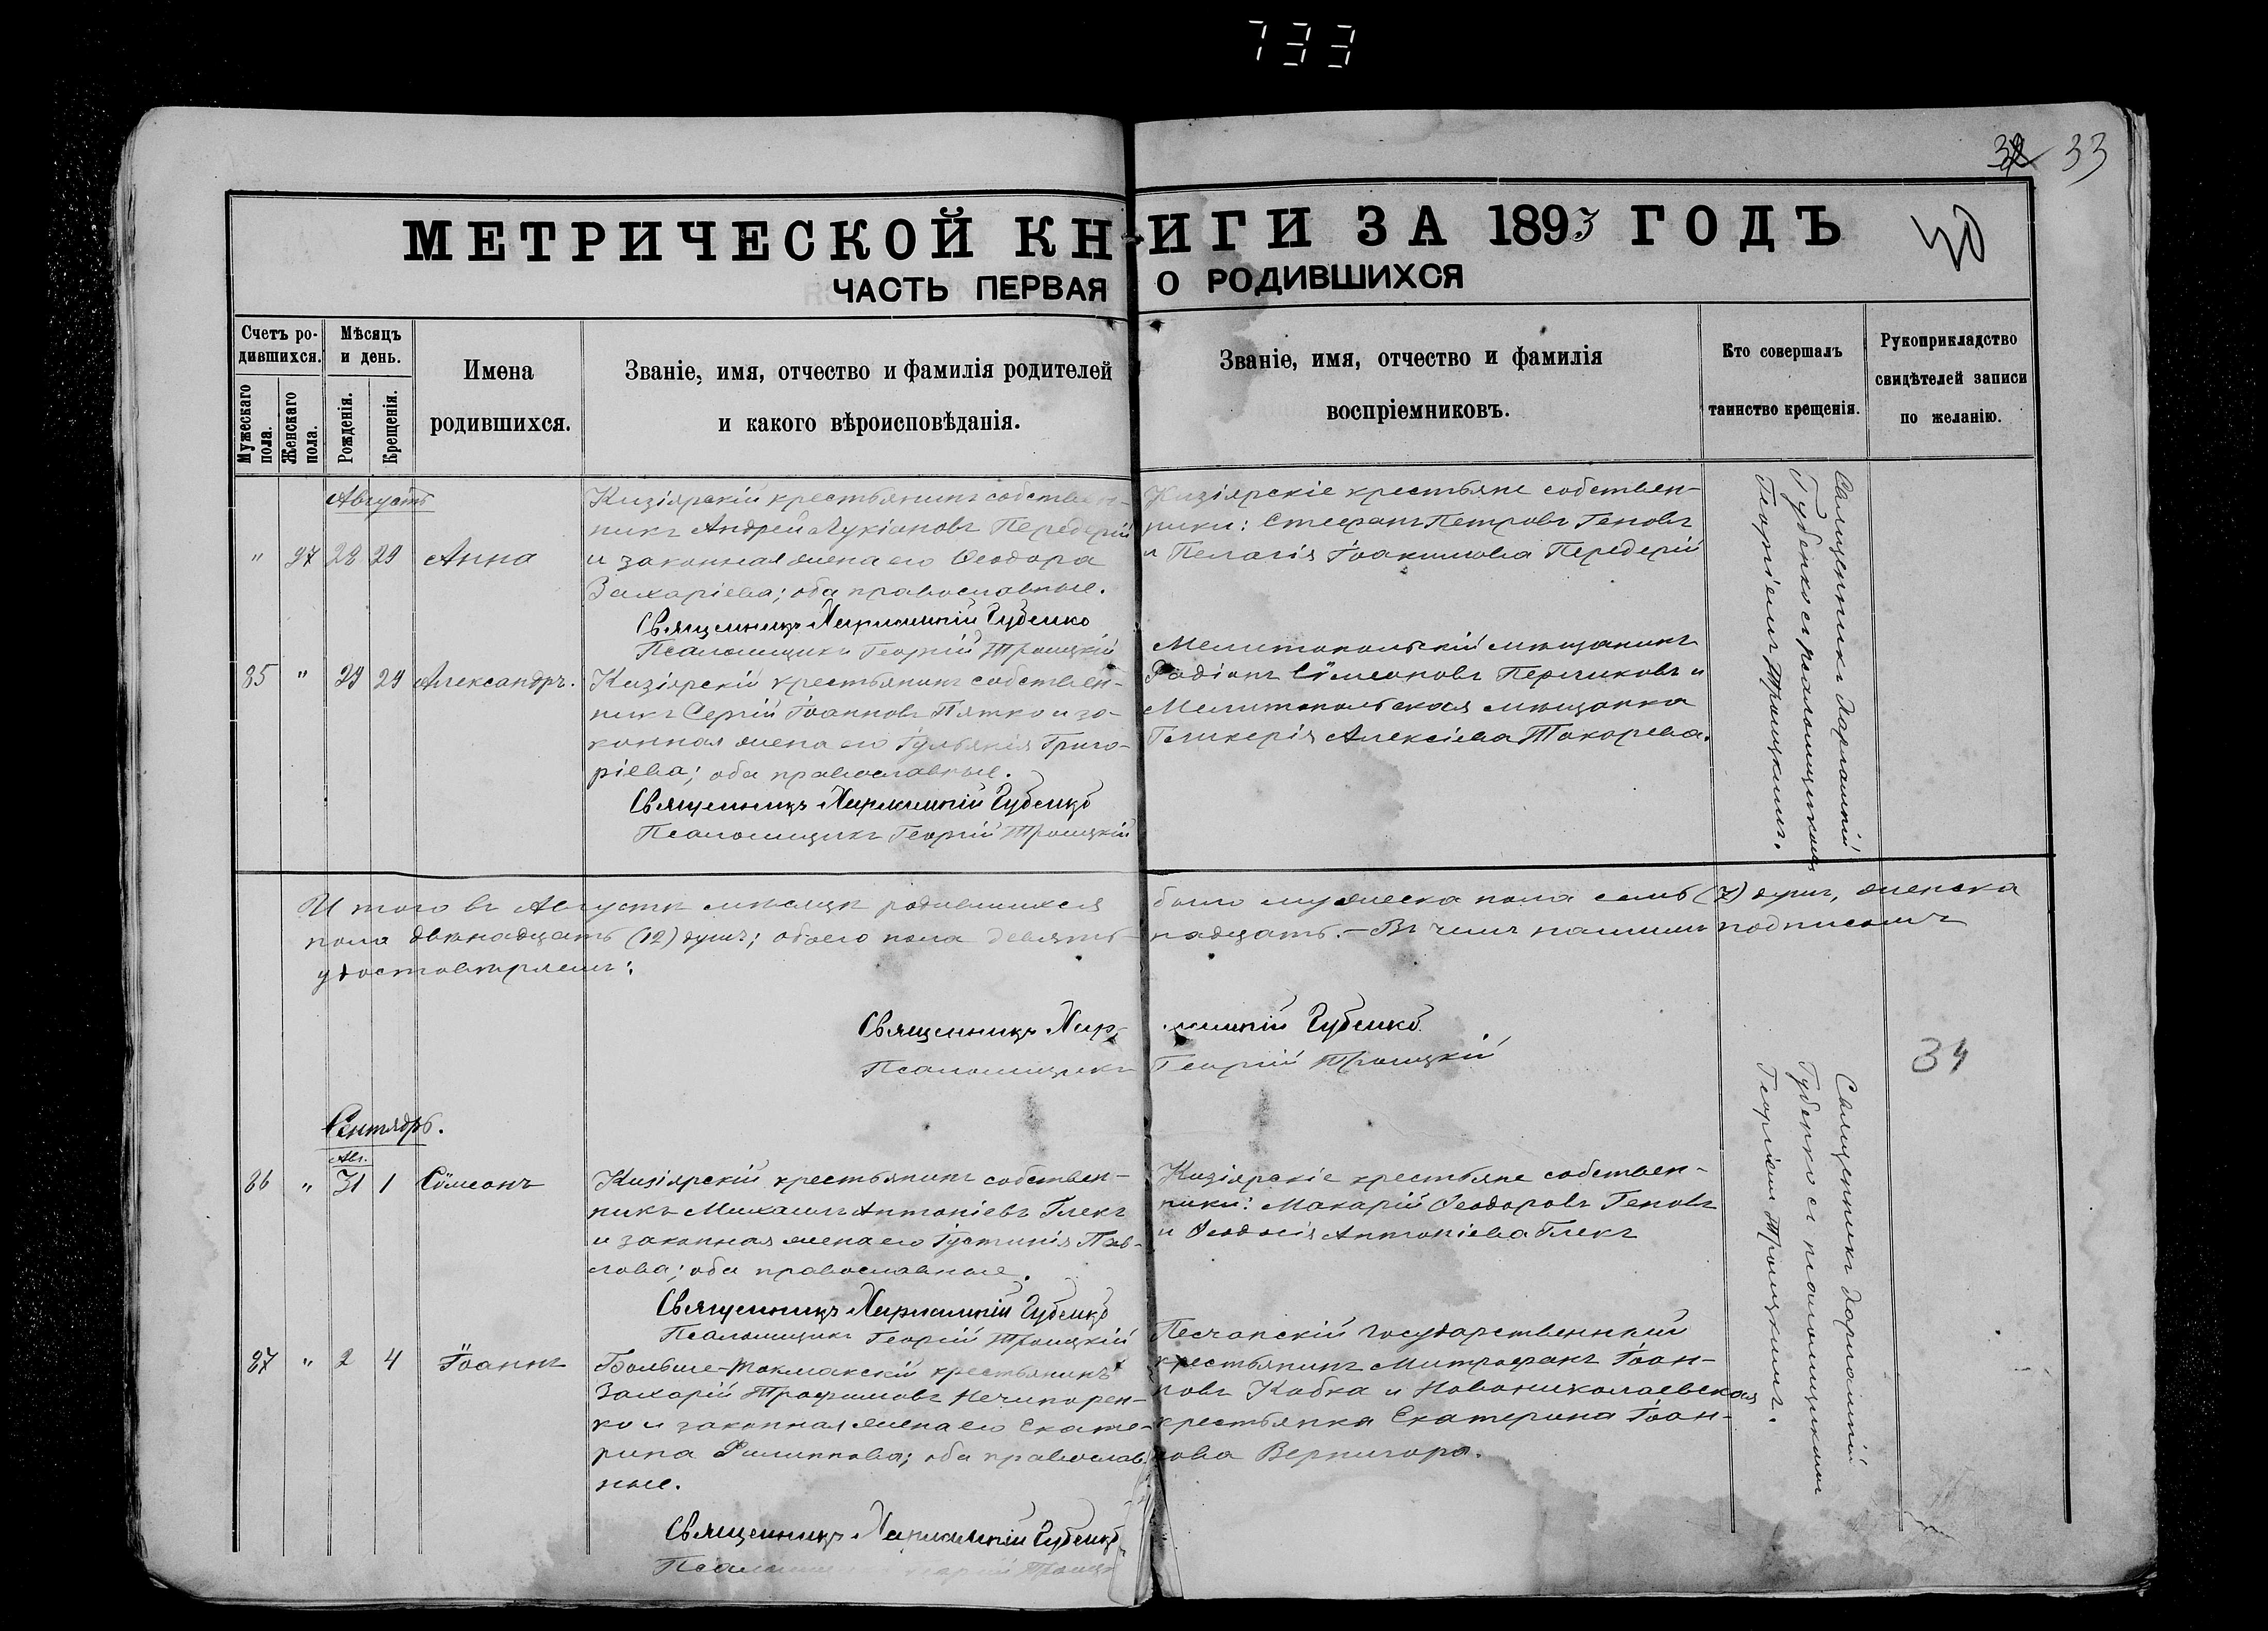 733
32 33
МЕТРИЧЕСКОЙ КНИГИ ЗА 1893 ГОДЪ
40
ЧАСТЬ ПЕРВАЯ О РОДИВШИХСЯ
Счетъ ро-
дившихся.
Мужескаго пола.
Женскаго пола.
Мѣсяцъ
и день.
Рожденія.
Крещенія.
Имена
родившихся.
Званіе, имя, отчество и фамилія родителей
и какого вѣроисповѣданія.
Званіе, имя, отчество и фамилія
воспріемниковъ.
Кто совершалъ
таинство крещенія.
Рукоприкладство
свидѣтелей записи
по желанію.
Августъ
" 37 28 29 Анна
Кизіярскій крестьянинъ собствен-
никъ Андрей Лукіановъ Передерій
и законная жена его Ѳеодора
Захаріева; оба православные.
Священникъ Харлампій Губенко
Псаломщикъ Георгій Троицкій
Кизіярскіе крестьяне собствен-
ники: Стефанъ Петровъ Геновъ
и Пелагія Іоакимова Передерій
35 " 29 29 Александръ.
Кизіярскій крестьянинъ собствен-
никъ Сергій Іоанновъ Пятко и за-
конная жена его Іуліанія Григо-
ріева; оба православные.
Священникъ Харлампій Губенко
Псаломщикъ Георгій Троицкій
Мелитопольскій мѣщанинъ
Родіонъ Сѵмеоновъ и
Мелитопольская мѣщанка
Гликерія Алексіева Токарева.
Священникъ Харлампій
Губенко съ псаломщикомъ
Георгіемъ Троицкимъ.
Итого въ Августѣ мѣсяцѣ родившихся было мужеска пола семь (7) душъ, женска
пола двѣнадцать (12) душъ; обоего пола девятнадцать. – Въ чемъ нашимъ подписомъ
удостовѣряемъ:
Священникъ Харлампій Губенко
Псаломщикъ Георгій Троицкій
34
Сентябрь.
Авг.
36 " 31 1 Сѵмеонъ
Кизіярскій крестьянинъ собствен-
никъ Михаилъ Антоніевъ Глекъ
и законная жена его Іустинія Пав-
лова; оба православные.
Священникъ Харлампій Губенко
Псаломщикъ Георгій Троицкій
Кизіярскіе крестьяне собствен-
ники: Макарій Ѳеодоровъ Геновъ
и Ѳеодосія Антоніева Глекъ
37 " 2 4 Іоаннъ
Больше-Токмакскій крестьянинъ
Захарій Трофимовъ Нечипорен-
ко и законная жена его Екате-
рина Филиппова; оба православ-
ные.
Священникъ Харлампій Губенко
Псаломщикъ Георгій Троицкій
Песчанскій государственный
крестьянинъ Митрофанъ Іоан-
новъ Кобка и Новониколаевская
крестьянка Екатерина Іоан-
нова Вернигора.
Священникъ Харлампій
Губенко съ псаломщикомъ
Георгіемъ Троицкимъ.